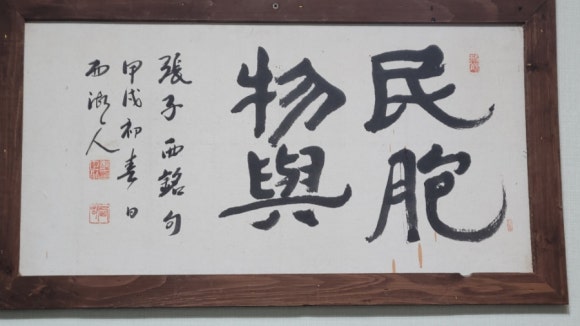 民胞
物與
張子西銘句
甲戌初春日
西湖人